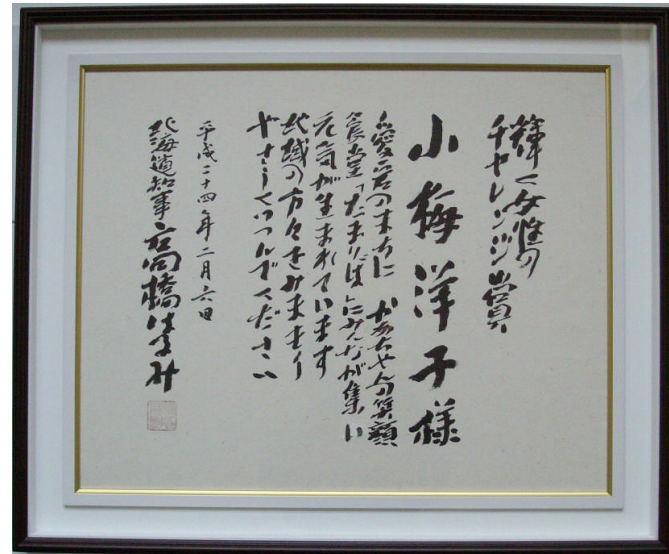 輝く女性の
チャレンジ賞
小梅洋子様
愛宕のまちに かあちゃんの笑顔
食堂「たまりば」にみんなが集い
元気が生まれています
地域の方々をみまもり
やさしくつつんでください
平成二十四年二月六日
北海道知事 高橋はるみ